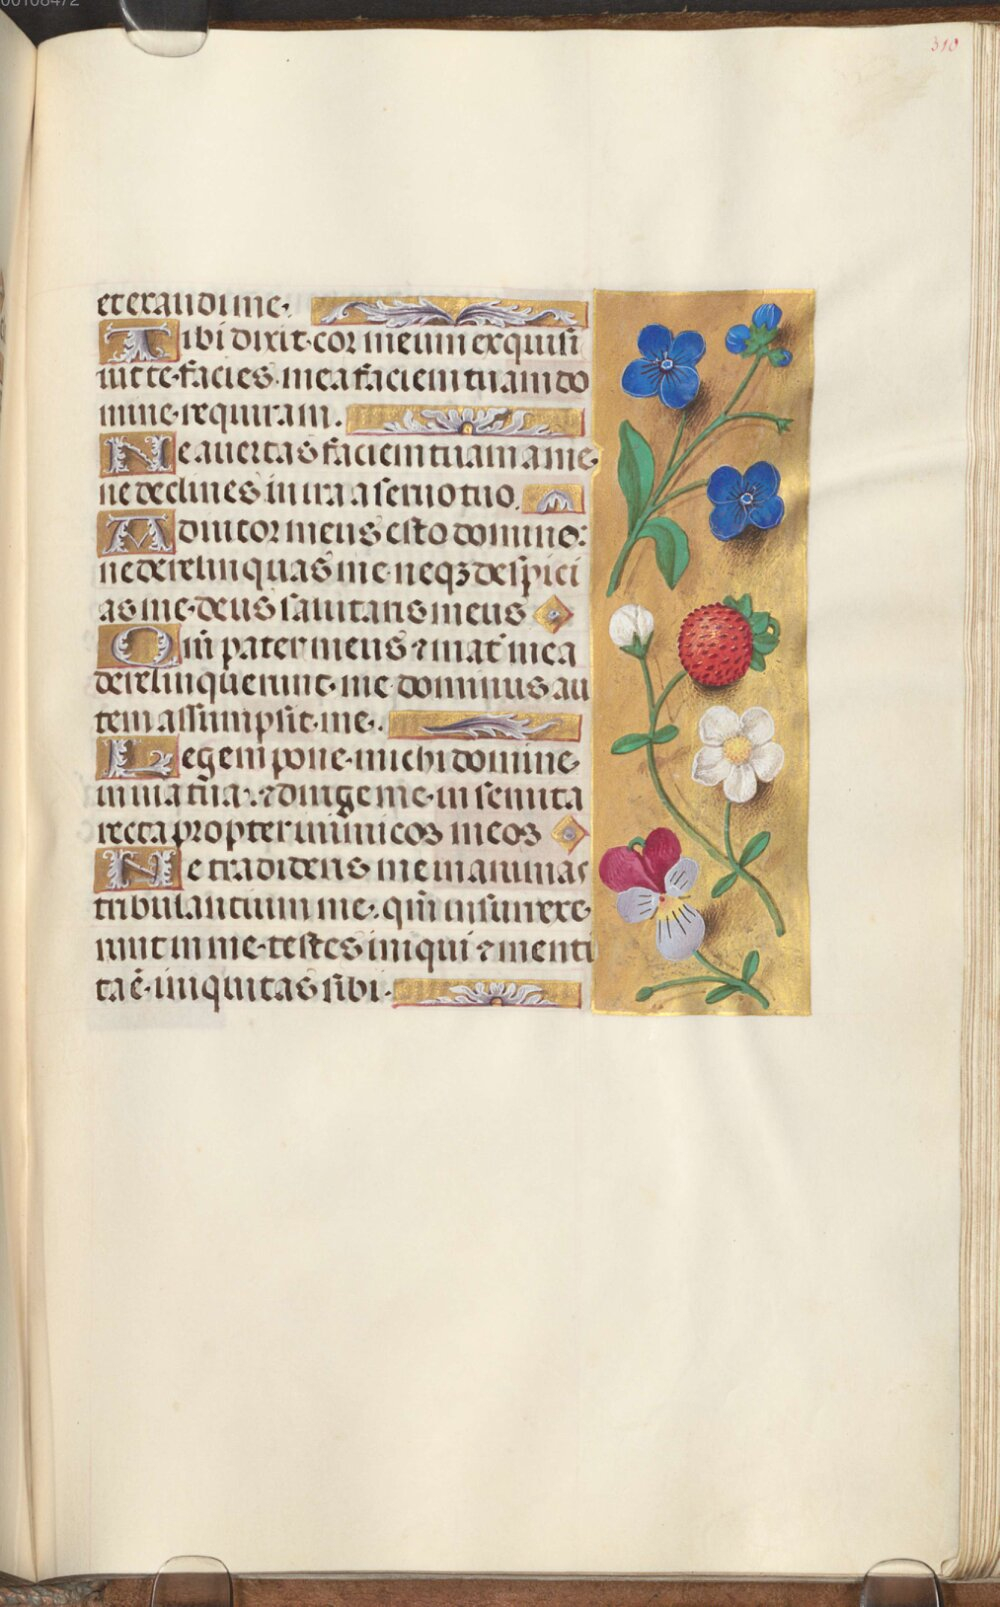 00108472
310
et exaudi me.
Tibi dixit cor meum exquisi
uit te facies mea faciem tuam do
mine requiram.
Ne auertas faciem tuam a me
ne declines in ira a seruo tuo.
Adiutor meus esto domine:
ne derelinquas me neqꝫ despici
as me deus salutaris meus
Qm̄ pater meus ⁊ mat̄ mea
derelinquerunt me dominus au
tem assumpsit me.
Legem pone michi domine
in uia tua ⁊ dirige me in semita
recta propter inimicos meos
Ne tradideris me in animas
tribulantium me. qm̄ insurrexe
runt in me testes iniqui ⁊ menti
ta ē iniquitas sibi.